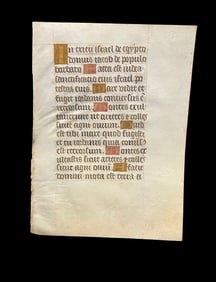 In exitu israel de egypto
domus iacob de populo
barbaro Facta est iudea
sanctificatio eius israel po
testas eius. Mare vidit et
fugit iordanis conversus e
retrorsum. Montes exul
taverunt ut arietes et colles
sicut agni ovium. Quid
est tibi mare quod fugisti
et tu iordanis quia conver
es retrorsum. Montes ex
ultastis sicut arietes et colles
sicut agni oviū. A facie
domini mota est terra a